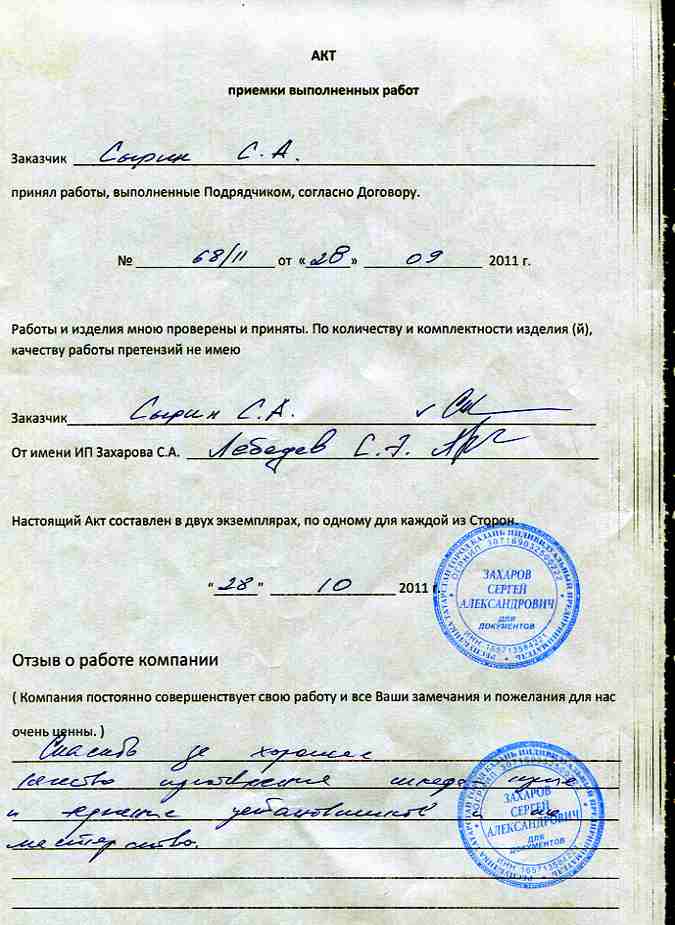 АКТ
приемки выполненных работ
Заказчик Сырин С.А.
принял работы, выполненные Подрядчиком, согласно Договору.
№ 68/11 от «28» 09 2011 г.
Работы и изделия мною проверены и приняты. По количеству и комплектности изделия (й),
качеству работы претензий не имею
Заказчик Сырин С.А.
От имени ИП Захарова С.А. Лебедев С.
Настоящий Акт составлен в двух экземплярах, по одному для каждой из Сторон.
"28" 10 2011 г.
РЕСПУБЛИКА ТАТАРСТАН ГОРОД КАЗАНЬ ИНДИВИДУАЛЬНЫЙ ПРЕДПРИНИМАТЕЛЬ
ЗАХАРОВ
СЕРГЕЙ
АЛЕКСАНДРОВИЧ
ДЛЯ
ДОКУМЕНТОВ
Отзыв о работе компании
( Компания постоянно совершенствует свою работу и все Ваши замечания и пожелания для нас
очень ценны. )
Спасибо за хорошее
качество изготовления
и установщиков за
мастерство.
ЗАХАРОВ
СЕРГЕЙ
АЛЕКСАНДРОВИЧ
ДЛЯ
ДОКУМЕНТОВ